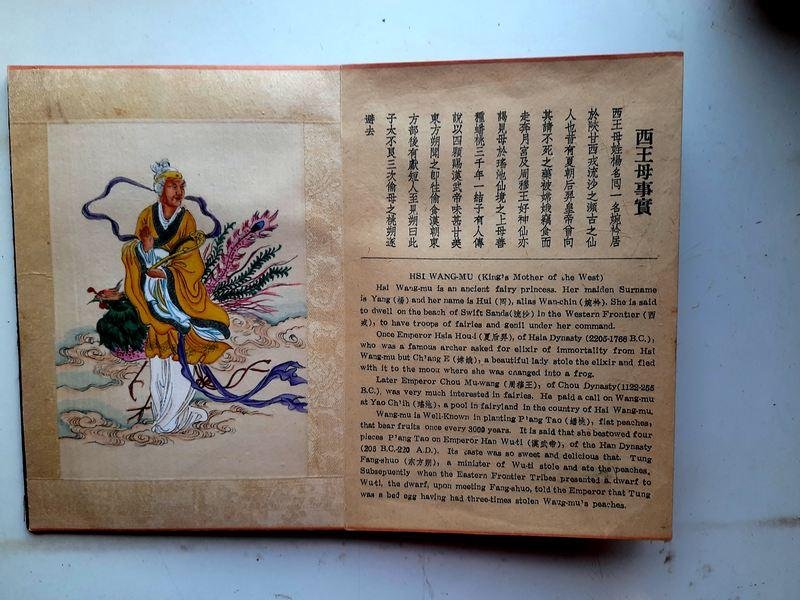 西王母事實
西王母姓楊名囘一名婉衿居
於陝甘西戎流沙之瀕古之仙
人也昔有夏朝后羿皇帝曾向
其請不死之藥被嫦娥竊食而
走奔月宮及周穆王好神仙亦
謁見母於瑤池仙境之上母善
種蟠桃三千年一結子有人傳
說以四顆賜漢武帝味甚甘美
東方朔聞之卽往偷食漢朝東
方部後有獻短人至見朔曰此
子太不良三次偷母之桃朔遂
避去
HSI WANG-MU (King's Mother of the West)
Hsi Wang-mu is an ancient fairy princess. Her maiden Surname
is Yang (楊) and her name is Hui (囘), alias Wan-chin (婉衿). She is said
to dwell on the beach of Swift Sands (流沙) in the Western Frontier (西
戎), to have troops of fairies and genii under her command.
Once Emperor Hsia Hou-i (夏后羿), of Hsia Dynasty (2205-1766 B.C.),
who was a famous archer asked for elixir of immortality from Hsi
Wang-mu but Ch'ang E (嫦娥), a beautiful lady stole the elixir and fled
with it to the moon where she was changed into a frog.
Later Emperor Chou Mu-wang (周穆王), of Chou Dynasty (1122-255
B.C.), was very much interested in fairies. He paid a call on Wang-mu
at Yao Ch'ih (瑤池), a pool in fairyland in the country of Hsi Wang-mu.
Wang-mu is Well-Known in planting P'ang Tao (蟠桃), flat peaches,
that bear fruits once every 3000 years. It is said that she bestowed four
pieces P'ang Tao on Emperor Han Wu-ti (漢武帝), of the Han Dynasty
(205 B.C.-220 A.D.). Its taste was so sweet and delicious that Tung
Fang-shuo (东方朔), a minister of Wu-ti stole and ate the peaches.
Subsepuently when the Eastern Frontier Tribes presented a dwarf to
Wu-ti, the dwarf, upon meeting Fang-shuo, told the Emperor that Tung
was a bed egg having had three-times stolen Wang-mu's peaches.